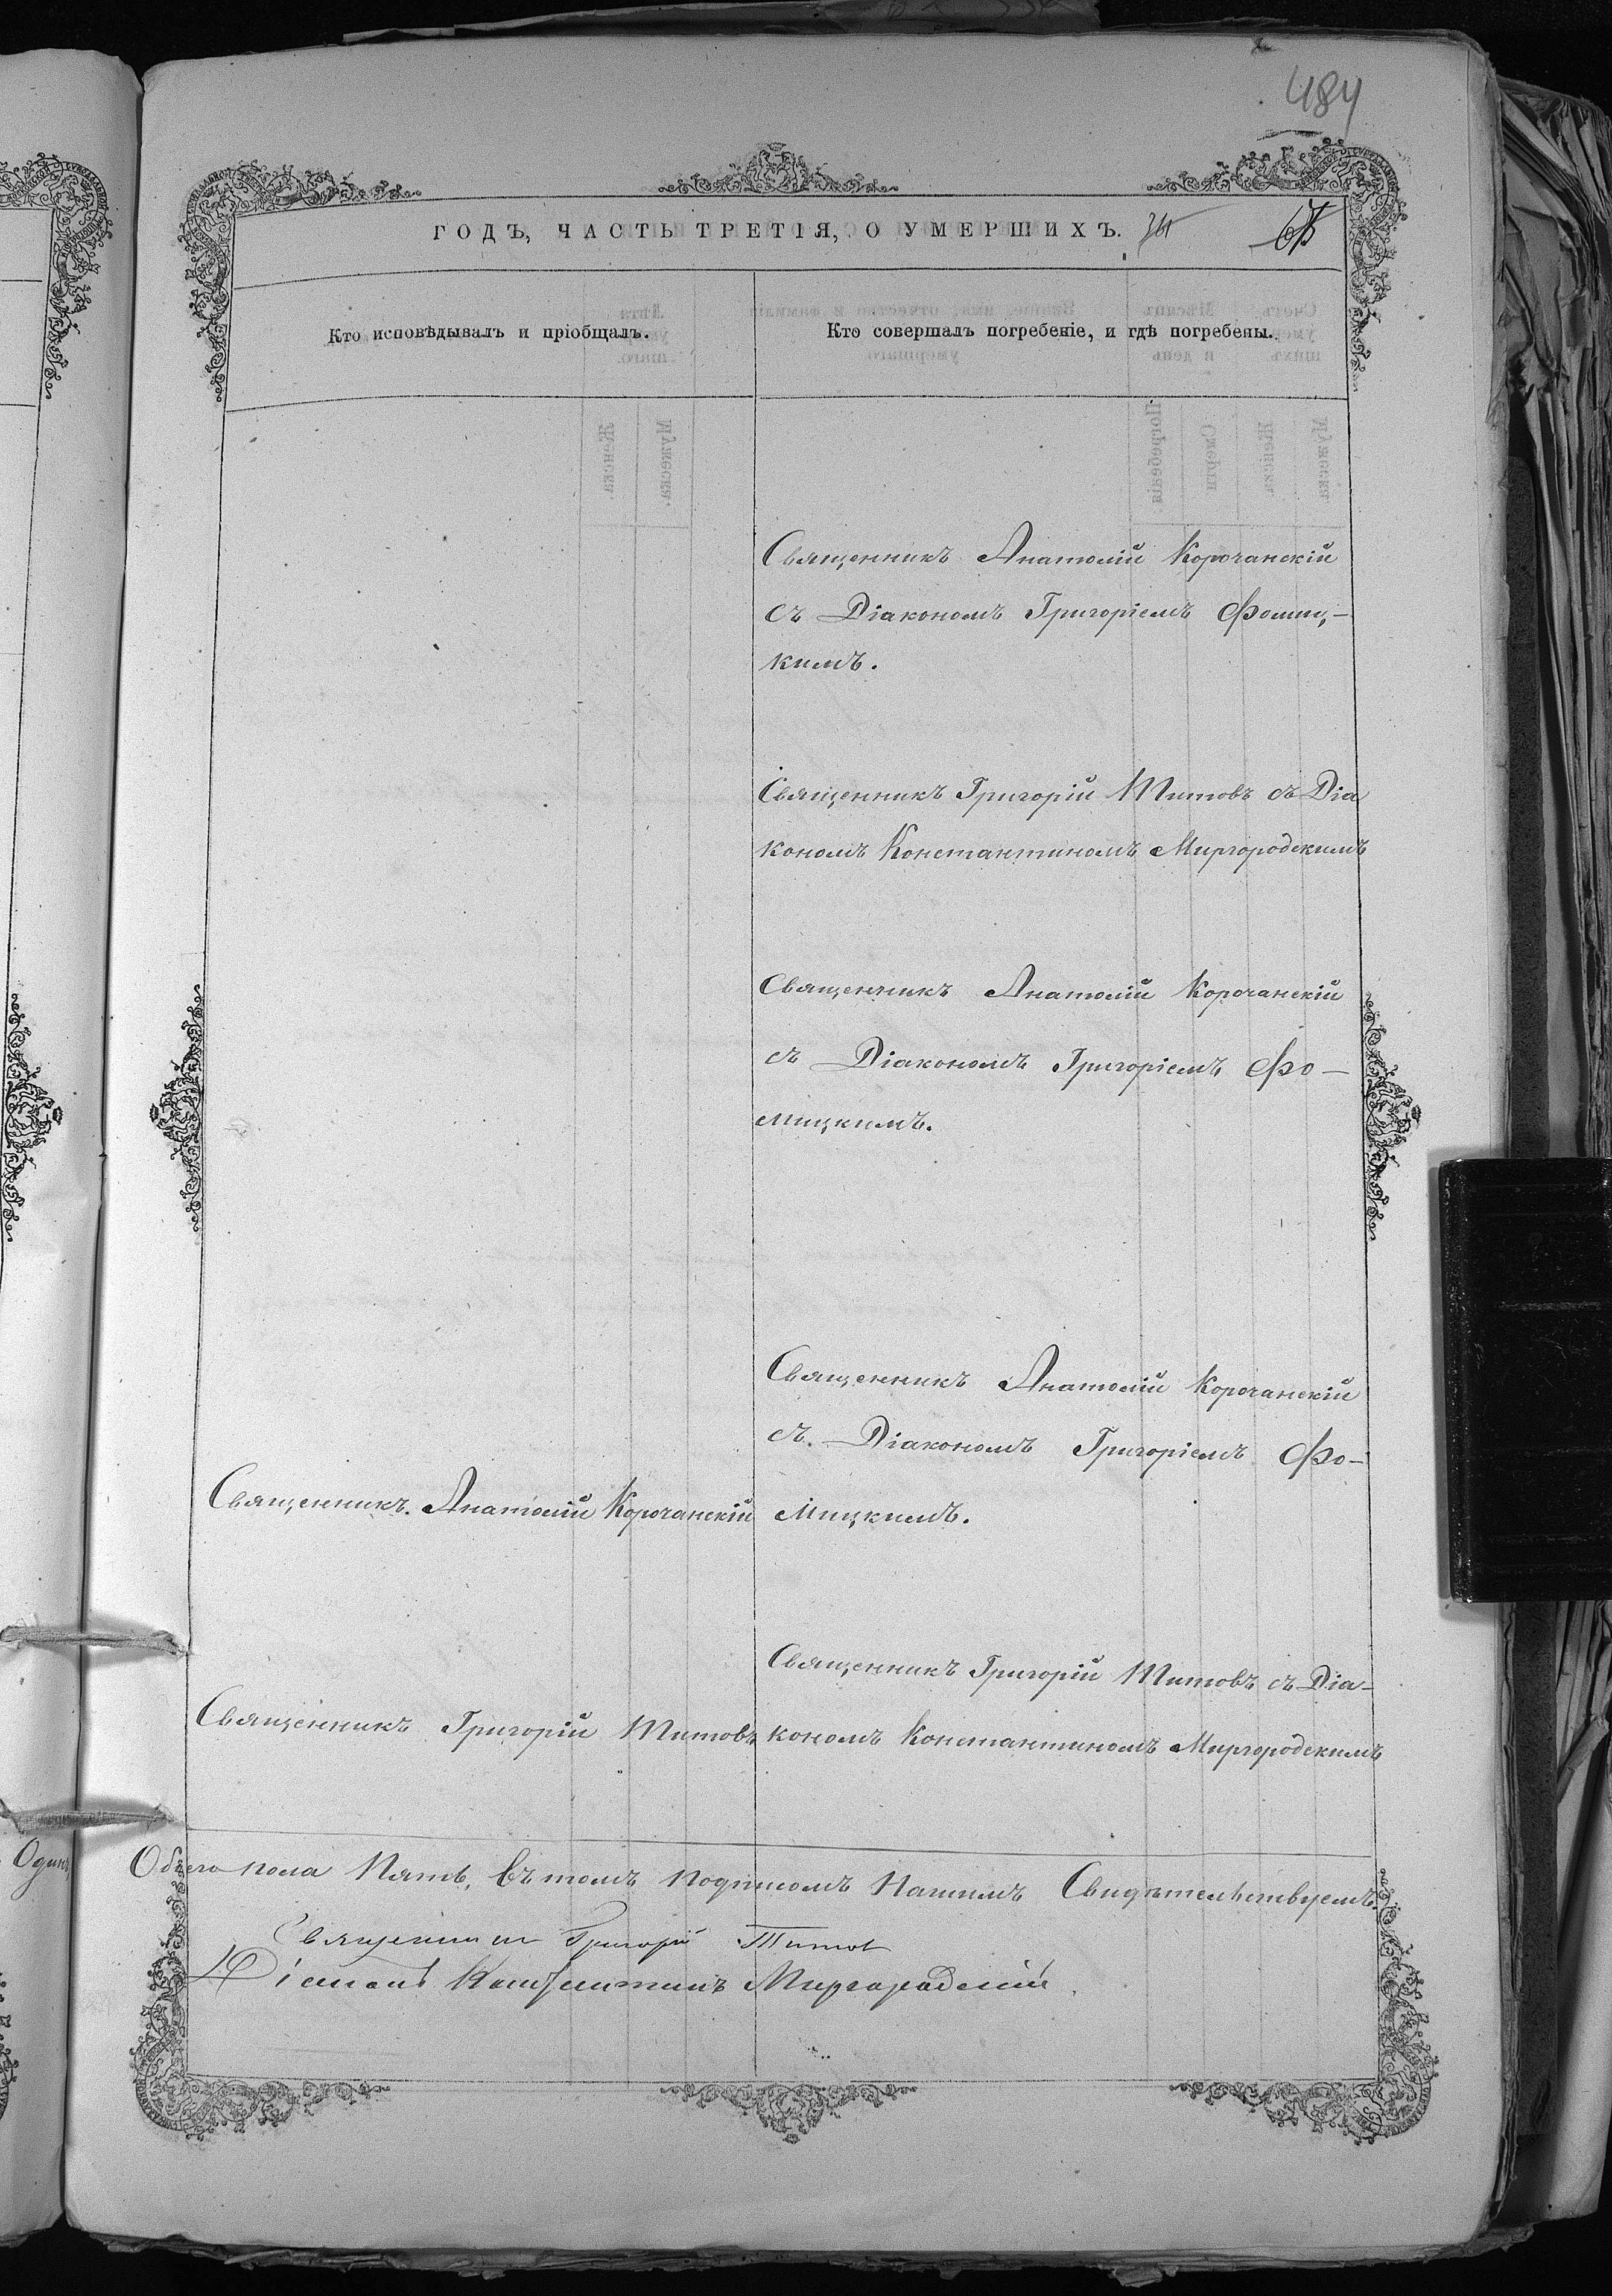 484
ГОДЪ, ЧАСТЬ ТРЕТІЯ, О УМЕРШИХЪ.
Кто исповѣдывалъ и пріобщалъ.
Кто совершалъ погребеніе, и гдѣ погребены.
Священникъ Анатолій Корочанскій
съ Діакономъ Григоріемъ Фомиц-
кимъ.
Священникъ Григорій Титовъ съ Діа
кономъ Константиномъ Миргородскимъ
Священникъ Анатолій Корочанскій
съ Діакономъ Григоріемъ Фо-
мицкимъ.
Священникъ Анатолій Корочанскій
съ Діакономъ Григоріемъ Фо-
Священникъ Анатолій Корочанскій
мицкимъ.
Священникъ Григорій Титовъ съ Діа-
Священникъ Григорій Титовъ
кономъ Константиномъ Миргородскимъ
Один
Обоего пола Пять, въ томъ подписомъ нашимъ Свидѣтельствуемъ.
Священник Григорій Титов
Діаконъ Константинъ Миргородскій